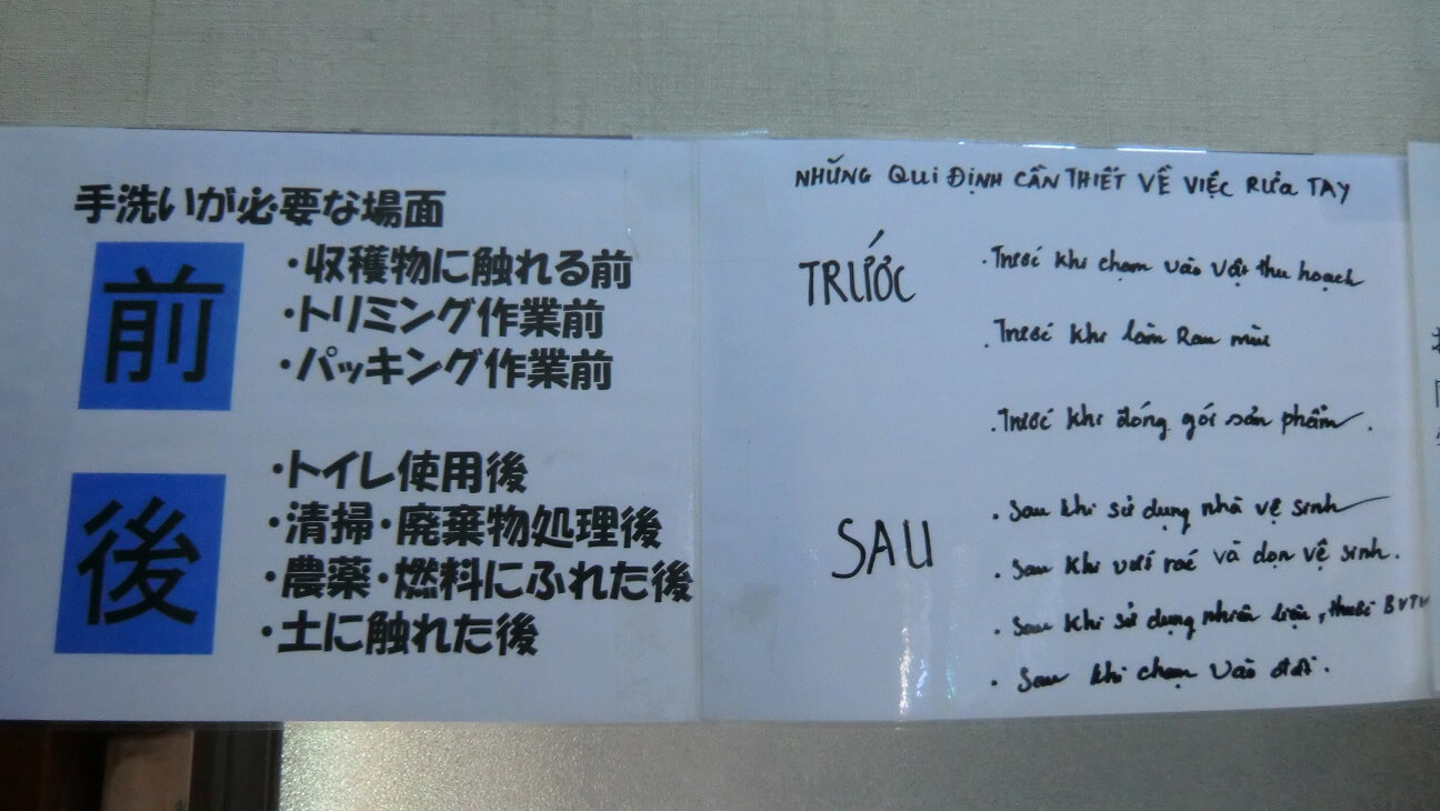 手洗いが必要な場面
前
・収穫物に触れる前
・トリミング作業前
・パッキング作業前
後
・トイレ使用後
・清掃・廃棄物処理後
・農薬・燃料にふれた後
・土に触れた後
NHỮNG QUI ĐỊNH CẦN THIẾT VỀ VIỆC RỬA TAY
TRƯỚC
. Trước khi chạm vào vật thu hoạch
. Trước khi làm Rau
. Trước khi đóng gói sản phẩm.
SAU
. Sau khi sử dụng nhà vệ sinh
. Sau khi vứt rác và dọn vệ sinh.
. Sau khi sử dụng nhiên liệu, thuốc BVTV
. Sau khi chạm vào đất.